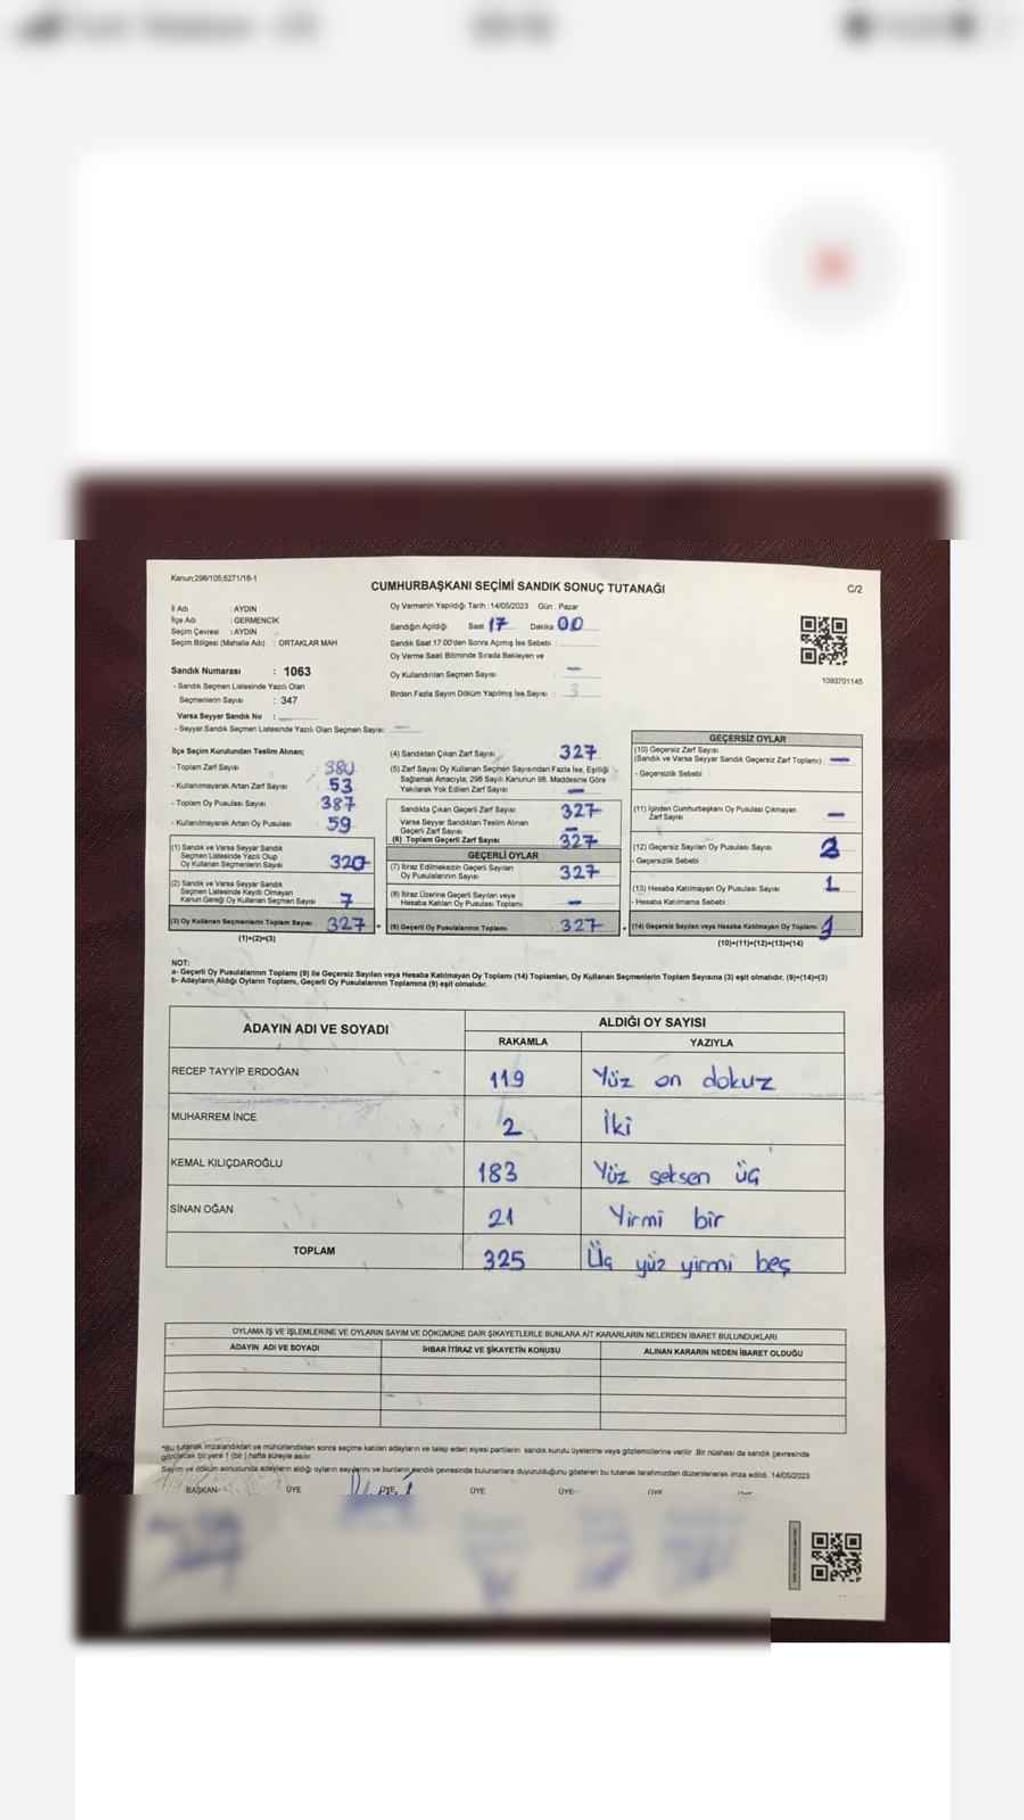 Kanun;298/105;6271/16-1
CUMHURBAŞKANI SEÇİMİ SANDIK SONUÇ TUTANAĞI
C/2
İl Adı : AYDIN
İlçe Adı : GERMENCİK
Seçim Çevresi : AYDIN
Seçim Bölgesi (Mahalle Adı) : ORTAKLAR MAH
Sandık Numarası : 1063
- Sandık Seçmen Listesinde Yazılı Olan
Seçmenlerin Sayısı : 347
Varsa Seyyar Sandık No :
- Seyyar Sandık Seçmen Listesinde Yazılı Olan Seçmen Sayısı: —
Oy Vermenin Yapıldığı Tarih : 14/05/2023 Gün : Pazar
Sandığın Açıldığı Saat 17 Dakika 00
Sandık Saat 17.00'den Sonra Açılmış İse Sebebi :
Oy Verme Saati Bitiminde Sırada Bekleyen ve
Oy Kullandırılan Seçmen Sayısı : —
Birden Fazla Sayım Döküm Yapılmış İse Sayısı : 3
1093701145
İlçe Seçim Kurulundan Teslim Alınan;
- Toplam Zarf Sayısı 380
- Kullanılmayarak Artan Zarf Sayısı 53
- Toplam Oy Pusulası Sayısı 387
- Kullanılmayarak Artan Oy Pusulası 59
(1) Sandık ve Varsa Seyyar Sandık
Seçmen Listesinde Yazılı Olup
Oy Kullanan Seçmenlerin Sayısı 320
(2) Sandık ve Varsa Seyyar Sandık
Seçmen Listesinde Kayıtlı Olmayan
Kanun Gereği Oy Kullanan Seçmen Sayısı 7
(3) Oy Kullanan Seçmenlerin Toplam Sayısı 327
(1)+(2)=(3)
(4) Sandıktan Çıkan Zarf Sayısı 327
(5) Zarf Sayısı Oy Kullanan Seçmen Sayısından Fazla İse, Eşitliği
Sağlamak Amacıyla, 298 Sayılı Kanunun 98. Maddesine Göre
Yakılarak Yok Edilen Zarf Sayısı —
Sandıkta Çıkan Geçerli Zarf Sayısı 327
Varsa Seyyar Sandıktan Teslim Alınan
Geçerli Zarf Sayısı —
(6) Toplam Geçerli Zarf Sayısı 327
GEÇERLİ OYLAR
(7) İtiraz Edilmeksizin Geçerli Sayılan
Oy Pusulalarının Sayısı 327
(8) İtiraz Üzerine Geçerli Sayılan veya
Hesaba Katılan Oy Pusulası Toplamı —
(9) Geçerli Oy Pusulalarının Toplamı 327
GEÇERSİZ OYLAR
(10) Geçersiz Zarf Sayısı
(Sandık ve Varsa Seyyar Sandık Geçersiz Zarf Toplamı) —
- Geçersizlik Sebebi
(11) İçinden Cumhurbaşkanı Oy Pusulası Çıkmayan
Zarf Sayısı —
(12) Geçersiz Sayılan Oy Pusulası Sayısı
- Geçersizlik Sebebi
(13) Hesaba Katılmayan Oy Pusulası Sayısı 1
- Hesaba Katılmama Sebebi
(14) Geçersiz Sayılan veya Hesaba Katılmayan Oy Toplamı
(10)+(11)+(12)+(13)=(14)
NOT:
a- Geçerli Oy Pusulalarının Toplamı (9) ile Geçersiz Sayılan veya Hesaba Katılmayan Oy Toplamı (14) Toplamları, Oy Kullanan Seçmenlerin Toplam Sayısına (3) eşit olmalıdır. (9)+(14)=(3)
b- Adayların Aldığı Oyların Toplamı, Geçerli Oy Pusulalarının Toplamına (9) eşit olmalıdır.
ADAYIN ADI VE SOYADI
ALDIĞI OY SAYISI
RAKAMLA YAZIYLA
RECEP TAYYİP ERDOĞAN 119 Yüz on dokuz
MUHARREM İNCE 2 İki
KEMAL KILIÇDAROĞLU 183 Yüz seksen üç
SİNAN OĞAN 21 Yirmi bir
TOPLAM 325 Üç yüz yirmi beş
OYLAMA İŞ VE İŞLEMLERİNE VE OYLARIN SAYIM VE DÖKÜMÜNE DAİR ŞİKAYETLERLE BUNLARA AİT KARARLARIN NELERDEN İBARET BULUNDUKLARI
ADAYIN ADI VE SOYADI İHBAR İTİRAZ VE ŞİKAYETİN KONUSU ALINAN KARARIN NEDEN İBARET OLDUĞU
*Bu tutanak imzalandıktan ve mühürlendikten sonra seçime katılan adayların ve talep eden siyasi partilerin sandık kurulu üyelerine veya gözlemcilerine verilir. Bir nüshası da sandık çevresinde
görülecek bir yere 1 (bir) hafta süreyle asılır.
Sayım ve döküm sonucunda adayların aldığı oyların sayılarını ve bunların sandık çevresinde bulunanlara duyurulduğunu gösteren bu tutanak tarafımızdan düzenlenerek imza edildi. 14/05/2023
BAŞKAN ÜYE ÜYE ÜYE